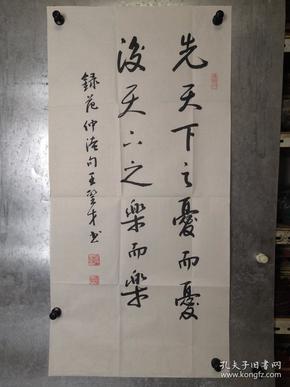 先天下之憂而憂
後天下之樂而樂
録范仲淹句王
书
孔夫子旧书网